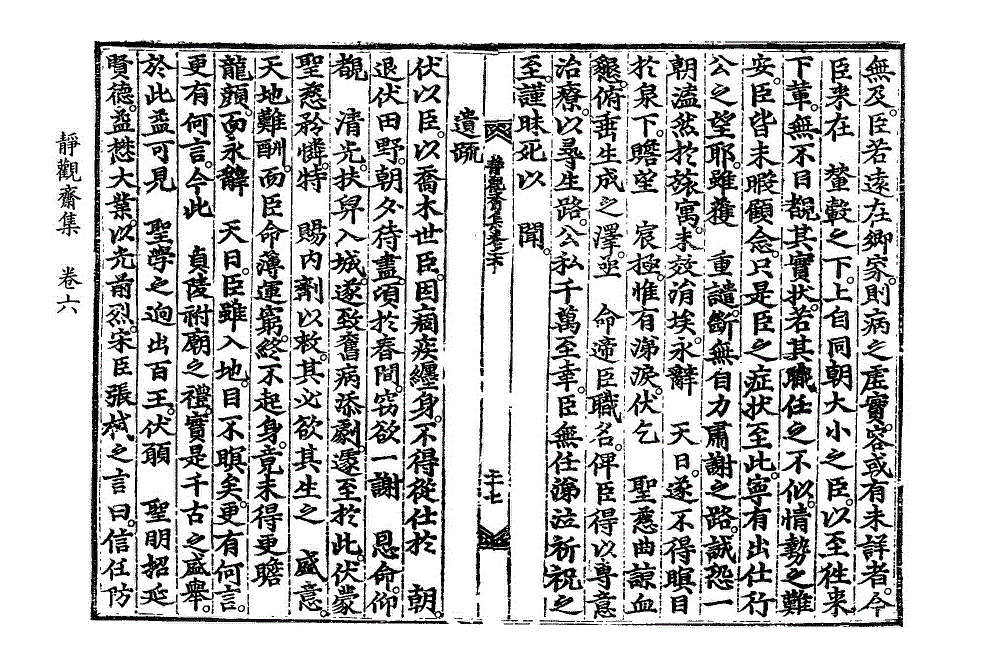 無及。臣若遠在鄕家。則病之虛實。容或有未詳者。今
臣來在 輦轂之下。上自同朝大小之臣。以至往來
下輩。無不目覩其實狀。若其職任之不似。情勢之難
安。臣皆未暇顧念。只是臣之症狀至此。寧有出仕行
公之望耶。雖獲 重譴。斷無自力肅謝之路。誠恐一
朝溘然於旅寓。未效涓埃。永辭 天日。遂不得瞑目
於泉下。瞻望 宸極。惟有涕淚。伏乞 聖慈曲諒血
懇。俯垂生成之澤。亟 命遞臣職名。俾臣得以專意
治療。以尋生路。公私千萬至幸。臣無任涕泣祈祝之
至。謹昧死以 聞。
靜觀齋集卷之六
二十七
遺疏
伏以臣。以喬木世臣。因痼疾纏身。不得從仕於 朝。
退伏田野。朝夕待盡。頃於春間。竊欲一謝 恩命。仰
覩 淸光。扶舁入城。遂致舊病添劇。遽至於此。伏蒙
聖慈矜憐。特 賜內劑以救。其必欲其生之 盛意。
天地難酬。而臣命薄運窮。終不起身。竟未得更瞻
龍顔。而永辭 天日。臣雖入地。目不瞑矣。更有何言。
更有何言。今此 貞陵祔廟之禮。實是千古之盛擧。
於此益可見 聖學之逈出百王。伏願 聖明招延
賢德。益懋大業。以光前烈。宋臣張栻之言曰。信任防
靜觀齋集 卷六